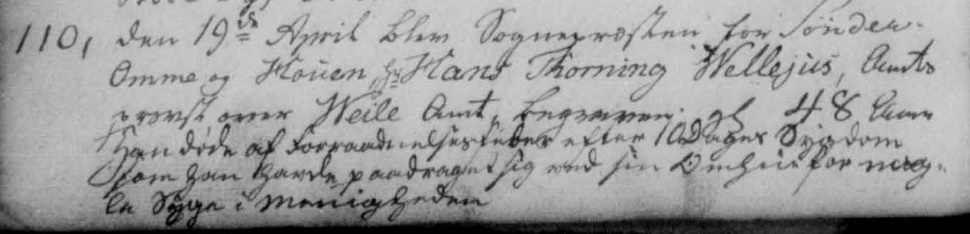 110, den 19de April blev Sognepræsten for Sønder-
Omme og Hoven, Hr Hans Thorning Wellejus, Amts
provst over Weile Amt, begraven, gl. 48 Aar
Han døde af Forraadnelsesfeber efter 10 Dages Sygdom
som han havde paadraget sig ved sin Omhue for nog-
le Syge i Menigheden